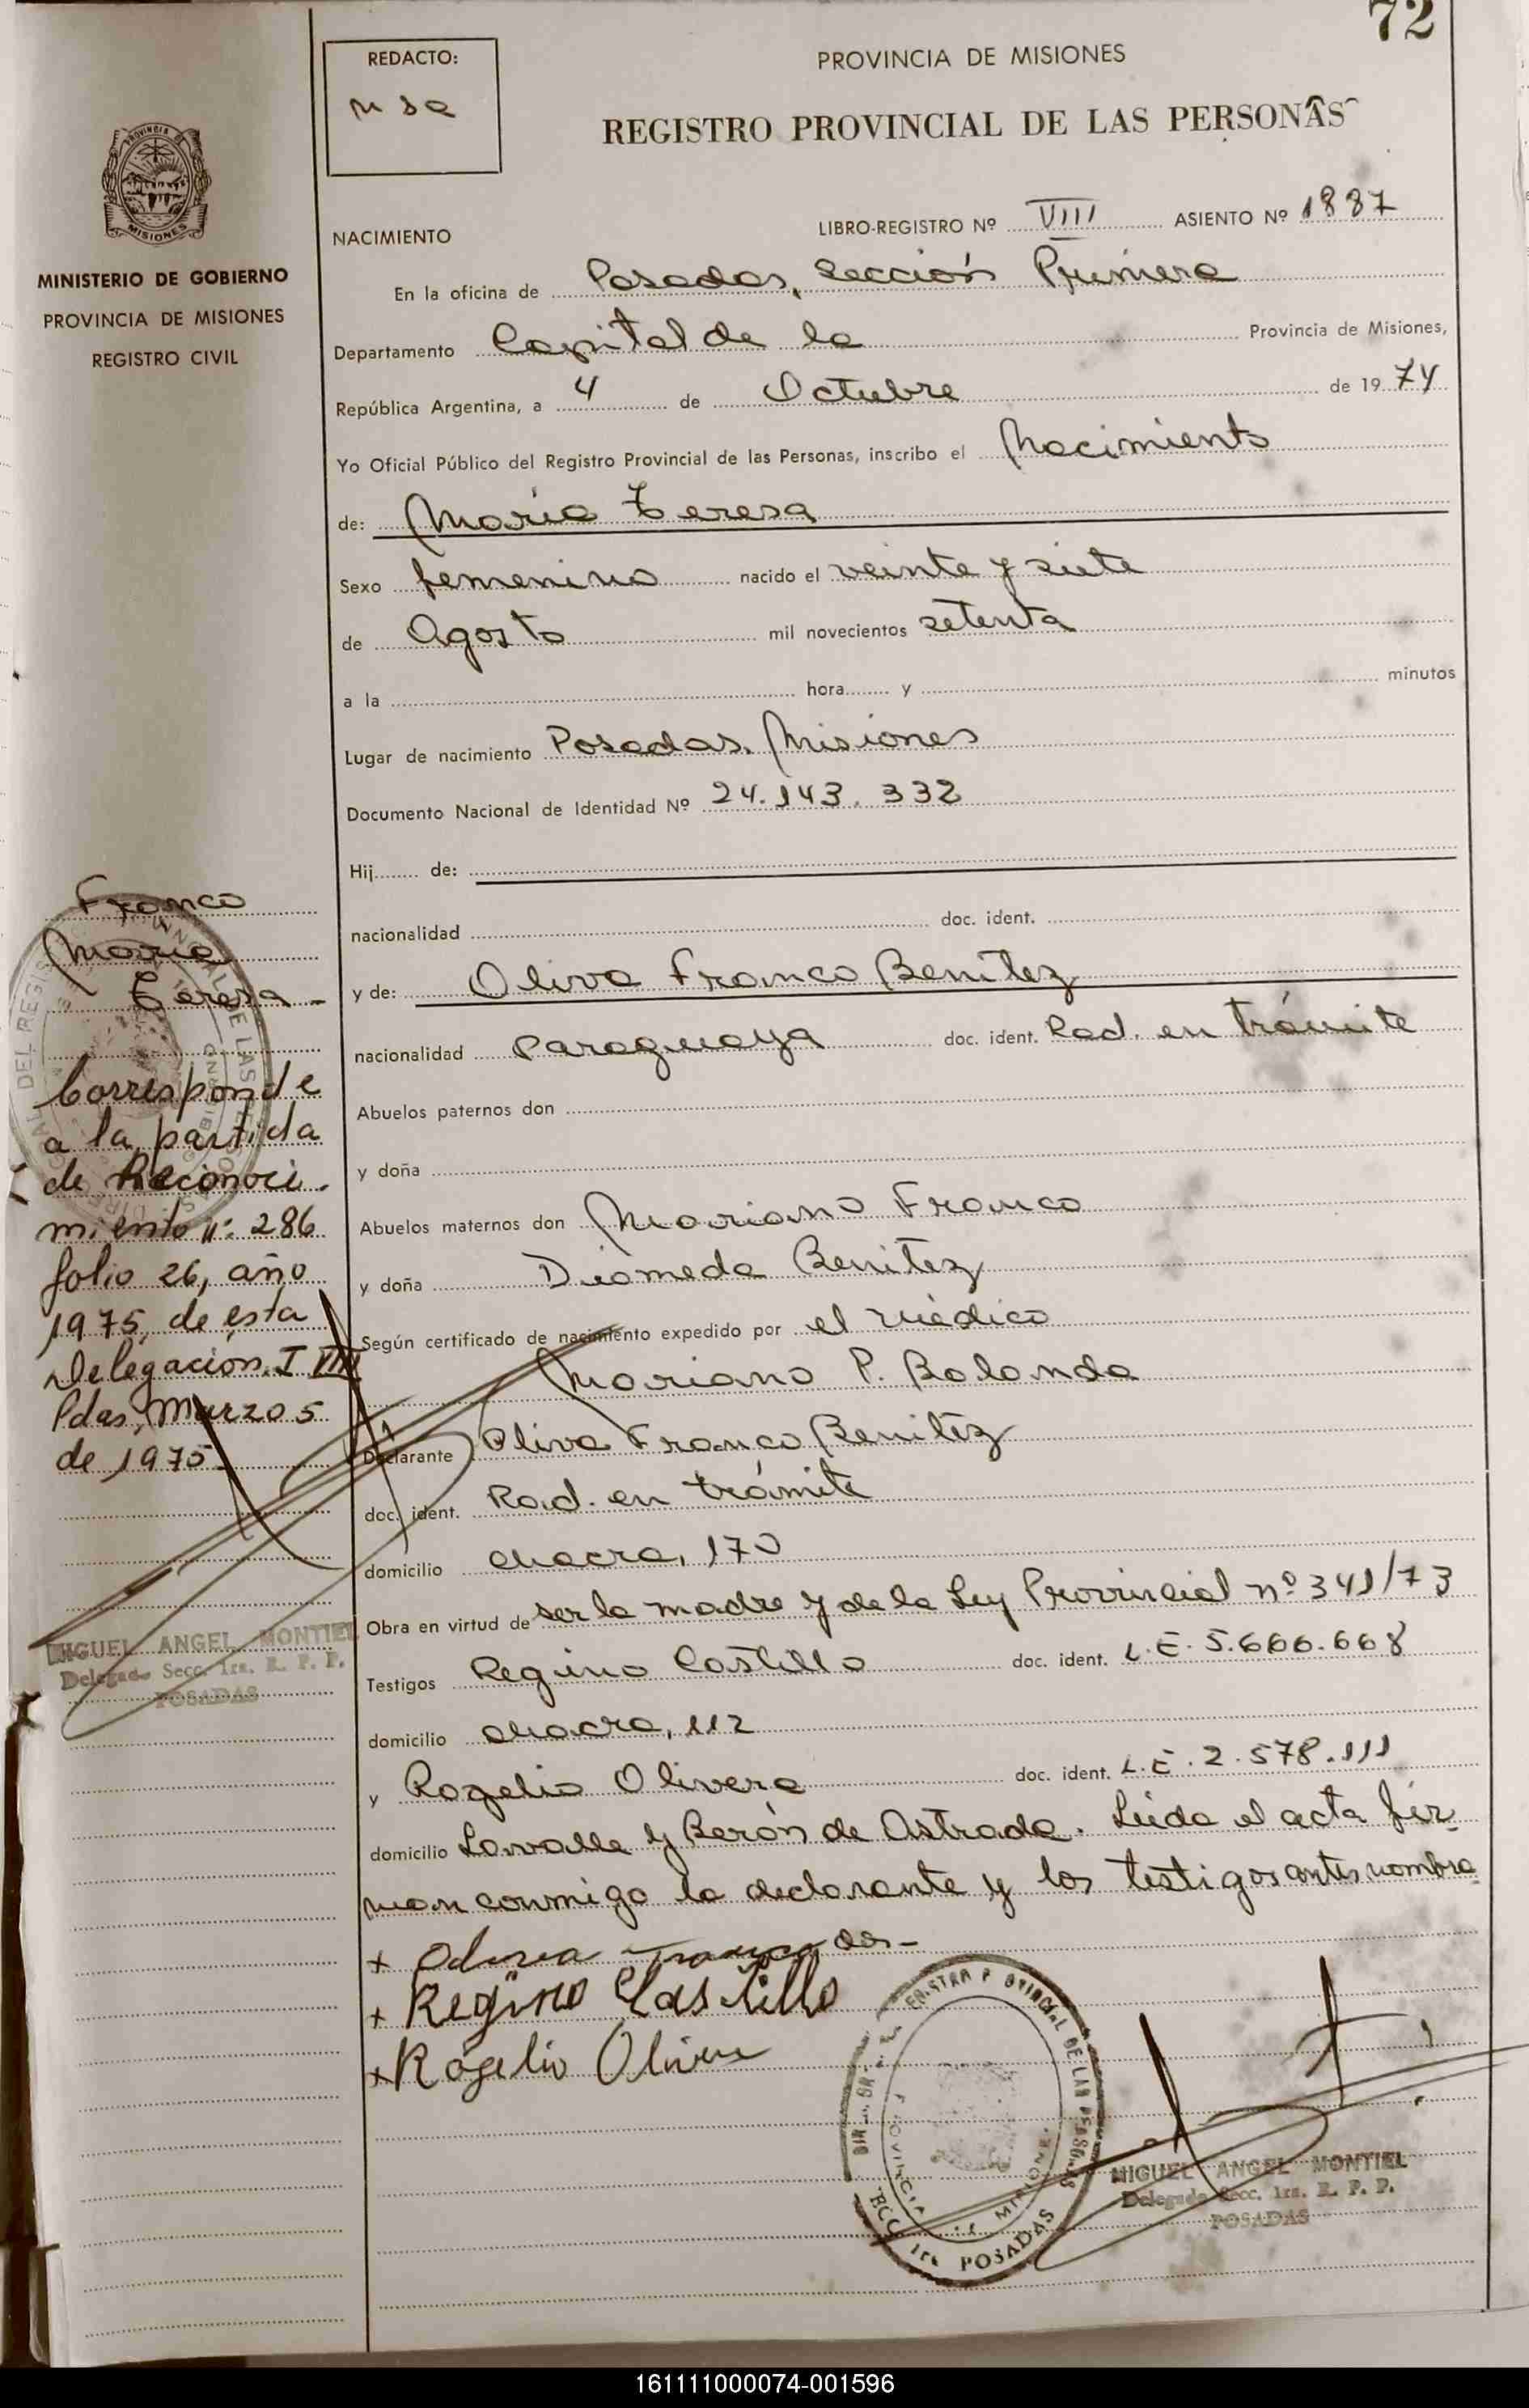 72
REDACTO:
PROVINCIA DE MISIONES
REGISTRO PROVINCIAL DE LAS PERSONAS
PROVINCIA DE
MISIONES
MINISTERIO DE GOBIERNO
PROVINCIA DE MISIONES
REGISTRO CIVIL
NACIMIENTO
LIBRO-REGISTRO Nº VIII ASIENTO Nº 1887
En la oficina de Posadas, Sección Primera
Departamento Capital de la Provincia de Misiones,
República Argentina, a 4 de Octubre de 1974
Yo Oficial Público del Registro Provincial de las Personas, inscribo el Nacimiento
de: María Teresa
Sexo femenino nacido el veinte y siete
de Agosto mil novecientos setenta
a la hora y minutos
Lugar de nacimiento Posadas. Misiones
Documento Nacional de Identidad Nº 24.143.332
Hij de:
nacionalidad doc. ident.
y de: Oliva Franco Benítez
nacionalidad Paraguaya doc. ident. Rad. en trámite
Abuelos paternos don
y doña
Abuelos maternos don Mariano Franco
y doña Diomeda Benitez
Según certificado de nacimiento expedido por el médico
Mariano P. Bolanda
Declarante Oliva Franco Benitez
doc. ident. Rad. en trámite
domicilio chacra, 170
Obra en virtud de ser la madre y de la Ley Provincial nº 341/73
Testigos Regino Castillo doc. ident. L.E. 5.666.668
domicilio chacra, 112
y Rogelio Olivera doc. ident. L.E. 2.578.111
domicilio Lavalle y Berón de Astrada. Leída el acta fir
man conmigo la declarante y los testigos antes nombra
dos-
+ Oliva Franco
+ Regino Castillo
+ Rogelio Olivera
Franco
María
Teresa -
Corresponde
a la partida
de Reconoci-
miento nº: 286
folio 26, año
1975, de esta
Delegación. I VIII
Pdas, Marzo 5
de 1975.
MIGUEL ANGEL MONTIEL
Delegado Secc. 1ra. R. P. P.
POSADAS
MIGUEL ANGEL MONTIEL
Delegado Secc. 1ra. R. P. P.
POSADAS
161111000074-001596